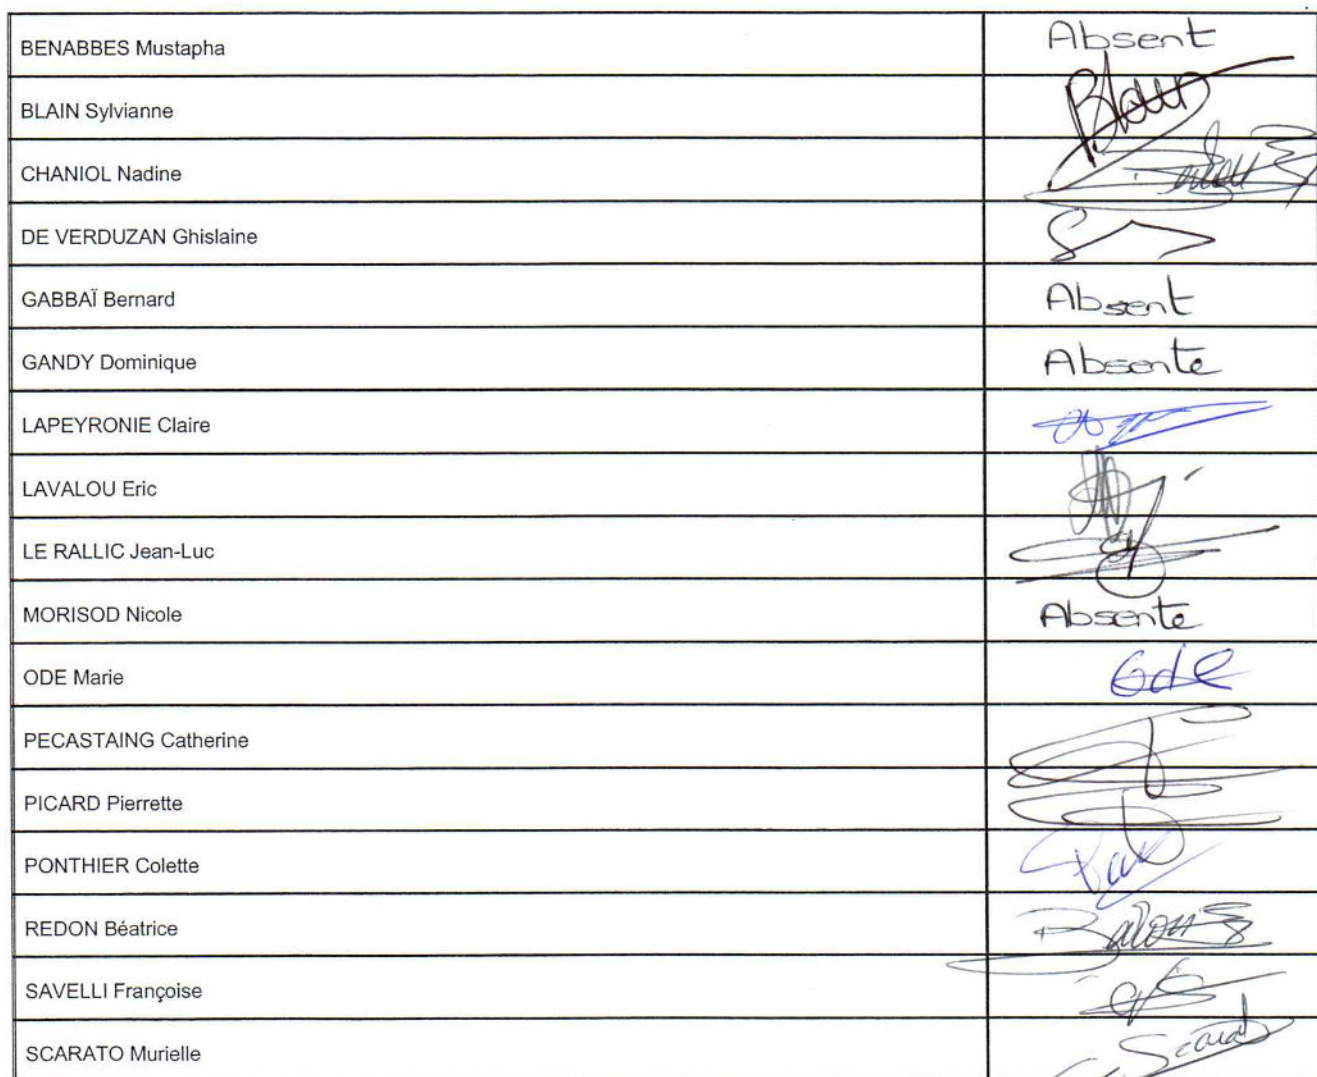 BENABBES Mustapha Absent
BLAIN Sylvianne Blain
CHANIOL Nadine
DE VERDUZAN Ghislaine
GABBAÏ Bernard Absent
GANDY Dominique Absente
LAPEYRONIE Claire
LAVALOU Eric
LE RALLIC Jean-Luc
MORISOD Nicole Absente
ODE Marie Ode
PECASTAING Catherine
PICARD Pierrette
PONTHIER Colette
REDON Béatrice
SAVELLI Françoise
SCARATO Murielle